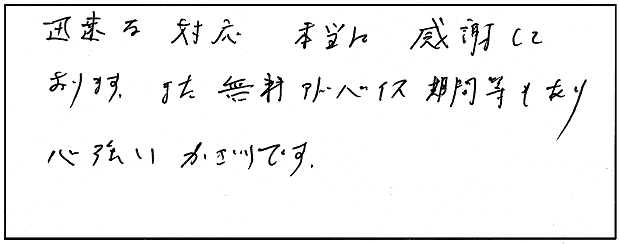 迅速な対応 本当に 感謝して
おります。また 無料アドバイス期間等もあり
心強いかぎりです。